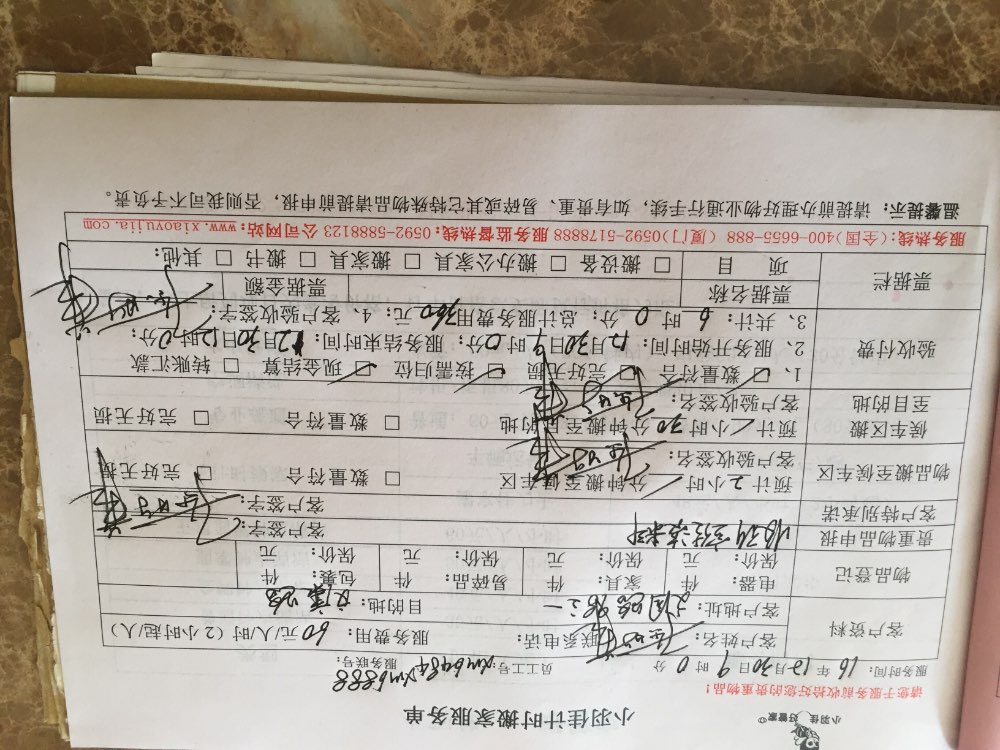 小羽佳 好管家
小羽佳计时搬家服务单
请您于服务前收拾好您的贵重物品！
服务时间： 16 年 12 月 30 日 9 时 0 分 员工工号： xm6484 xm6888 服务联号：
客户资料 客户姓名： 联系电话： 服务费用： 60 元/人/时（2小时起/人）
客户地址： 目的地：
物品登记 电器： 件 家具： 件 易碎品： 件 包裹： 件
保价： 元 保价： 元 保价： 元 保价： 元
贵重物品申报 客户签字：
客户特别承诺 客户签字：
物品搬至侯车区 预计 2 小时 分钟搬至侯车区 □ 数量符合 □ 完好无损
客户验收签名：
侯车区搬至目的地 预计 小时 30 分钟搬至目的地 □ 数量符合 □ 完好无损
客户验收签名：
验收付费 1、□ 数量符合 □ 完好无损 □ 按需归位 □ 现金结算 □ 转账汇款
2、服务开始时间： 12 月 30 日 9 时 0 分； 服务结束时间： 12 月 30 日 12 时 0 分；
3、共计： 6 时 0 分； 总计服务费用 360 元； 4、客户验收签字：
票据栏 票据名称 票据金额
项 目 □ 搬设备 □ 搬办公家具 □ 搬家具 □ 搬书 □ 其他：
服务热线：(全国)400-6655-888 (厦门)0592-5178888 服务监督热线：0592-5888123 公司网站：www.xiaoyujia.com
温馨提示：请提前办理好物业通行手续，如有贵重、易碎或其它特殊物品请提前申报，否则我司不予负责。